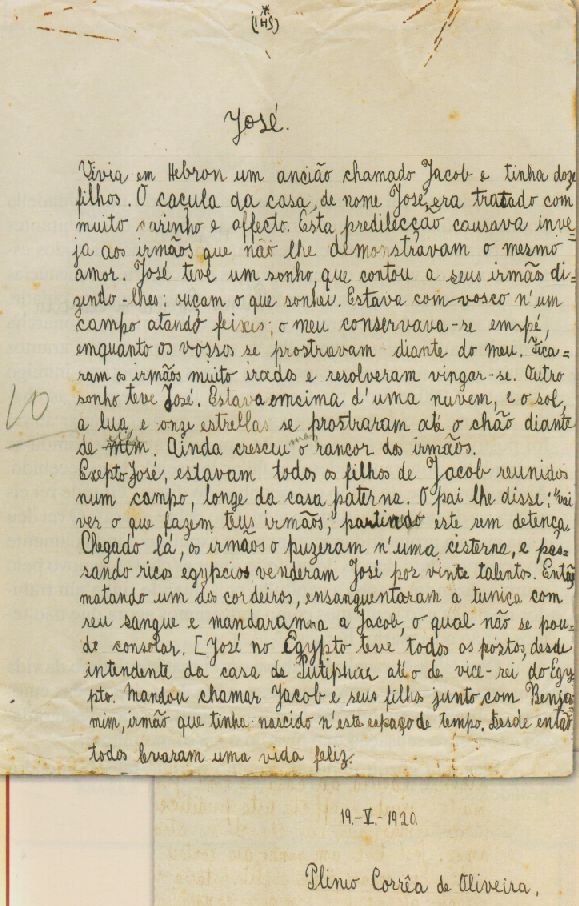 (IHS)
José.
Vivia em Hebron um ancião chamado Jacob e tinha doze
filhos. O caçula da casa, de nome José, era tratado com
muito carinho e affecto. Esta predilecção causava inve-
ja aos irmãos que não lhe demonstravam o mesmo
amor. José teve um sonho, que contou a seus irmãos di-
zendo-lhes: ouçam o que sonhei. Estava com vosco n'um
campo atando feixes; o meu conservava-se em pé,
emquanto os vossos se prostravam diante do meu. Fica-
ram os irmãos muito irados e resolveram vingar-se. Outro
sonho teve José. Estava emcima d'uma nuvem, e o sol,
a lua e onze estrellas se prostraram até o chão diante
de mim. Ainda cresceu mais o rancor dos irmãos.
10
Exepto José, estavam todos os filhos de Jacob reunidos
num campo, longe da casa paterna. O pai lhe disse: Vai
ver o que fazem teus irmãos; partindo este sem detença.
Chegado lá, os irmãos o puzeram n'uma cisterna, e pas-
sando ricos egypcios venderam José por vinte talentos. Então
matando um dos cordeiros, ensanguentaram a tunica com
seu sangue e mandaram-na a Jacob, o qual não se pou-
de consolar. [José no Egypto teve todos os postos, desde
intendente da casa de Putiphar até o de vice-rei do Egy-
pto. Mandou chamar Jacob e seus filhs junto com Benja-
mim, irmão que tinha nascido n'este espaço de tempo. Desde então
todos levaram uma vida feliz.
19-V-1920.
Plinio Corrêa de Oliveira.